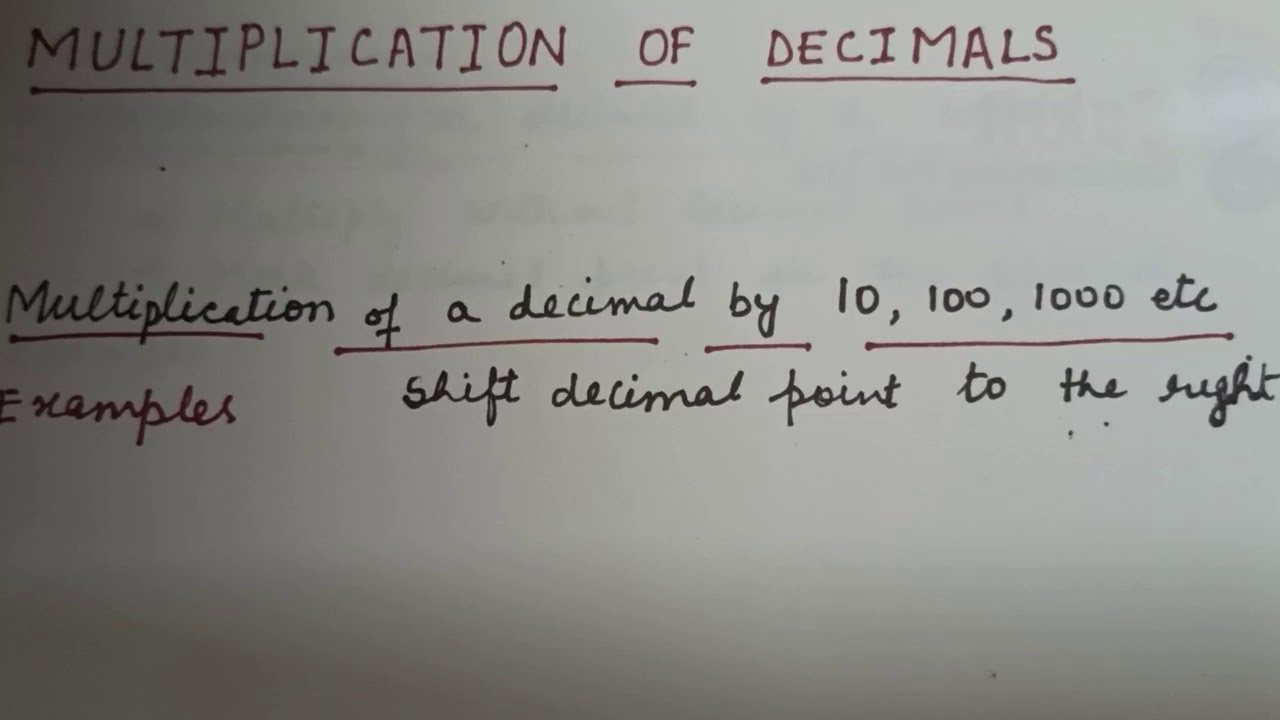 MULTIPLICATION OF DECIMALS
Multiplication of a decimal by 10, 100, 1000 etc
Examples shift decimal point to the right